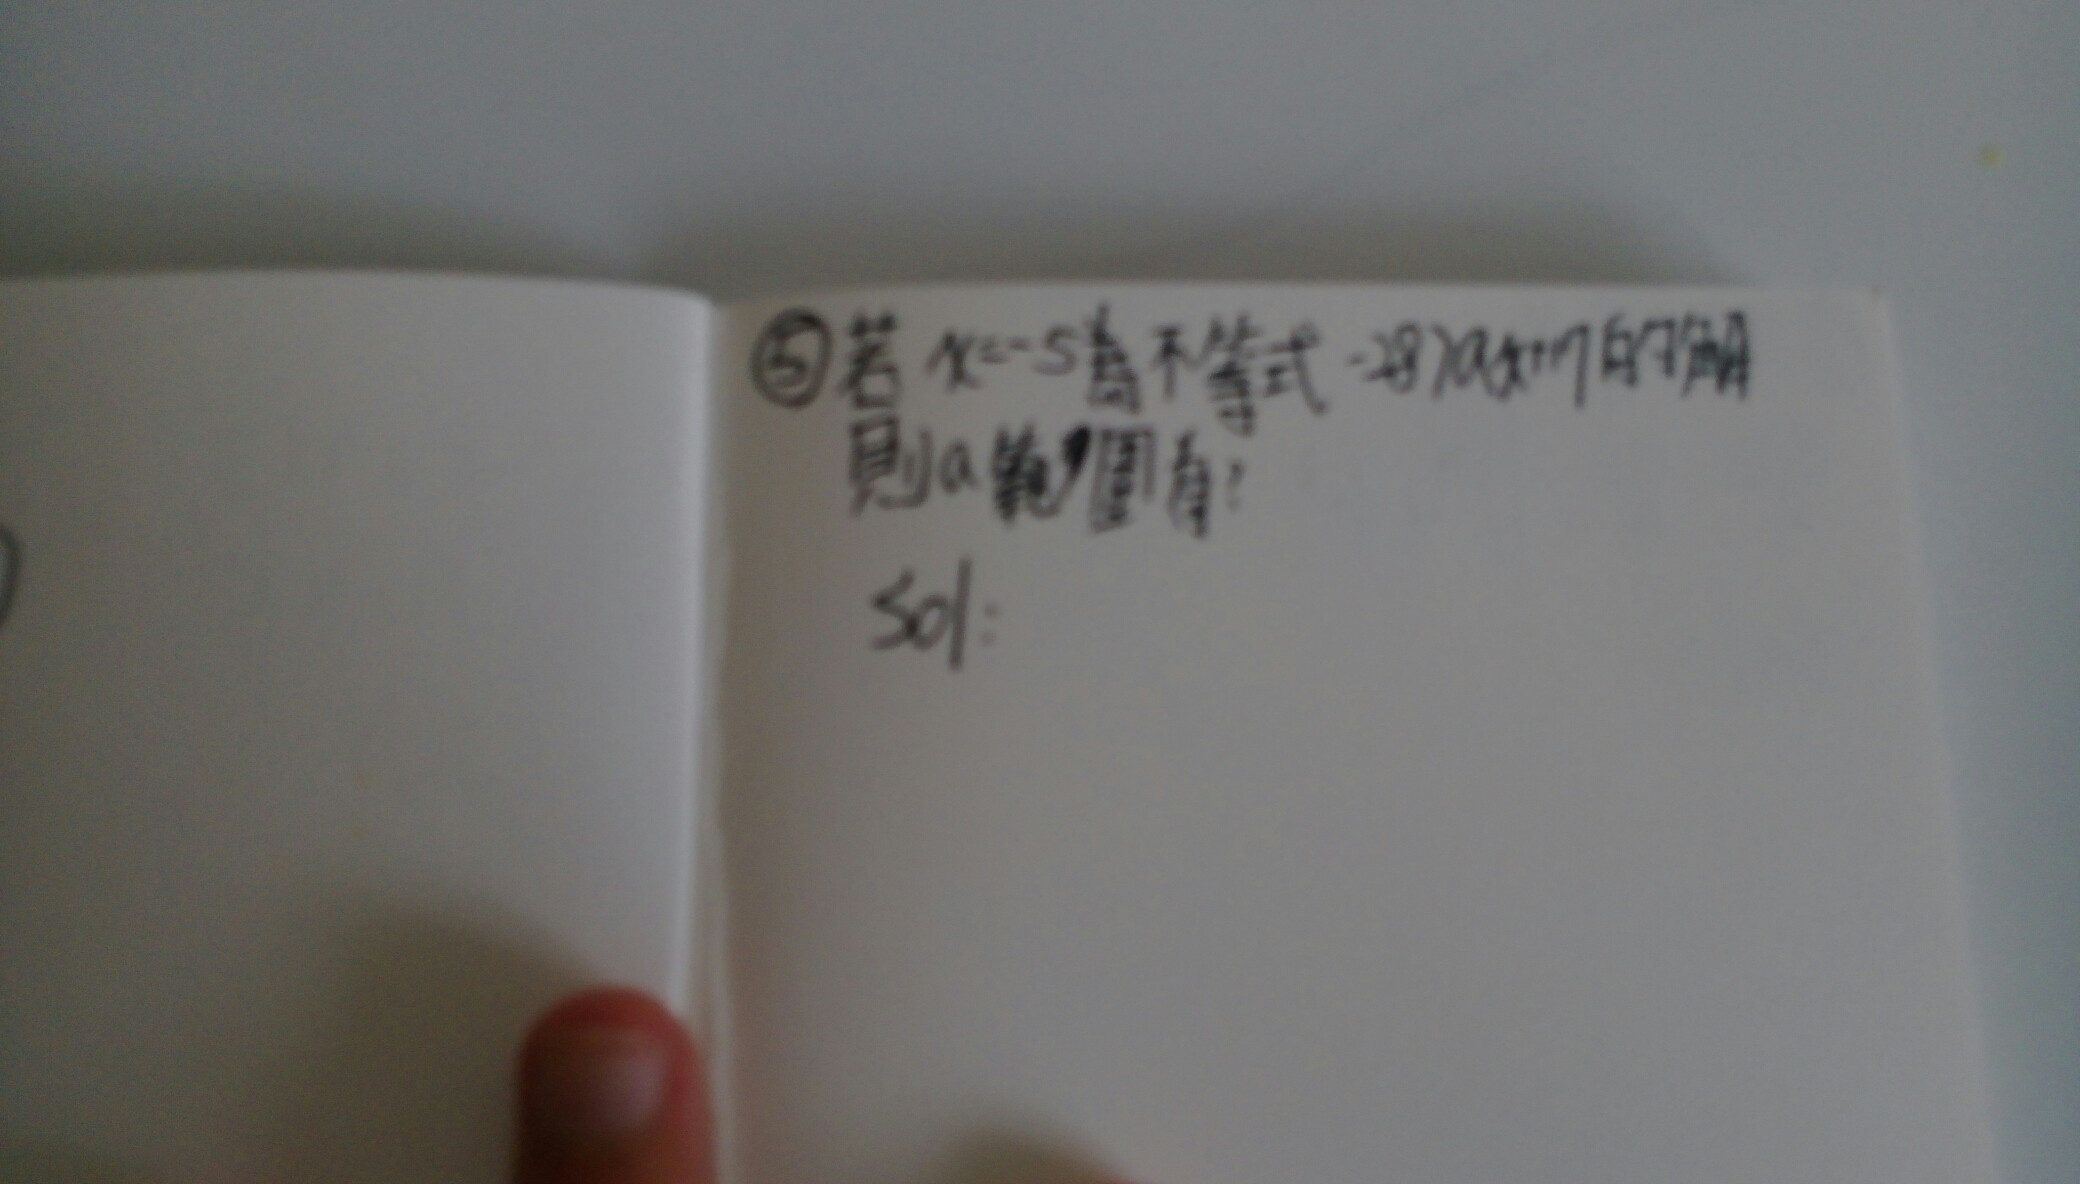 ⑤若 x=-5為不等式 -28>ax+7的解
則a範圍為?
Sol: